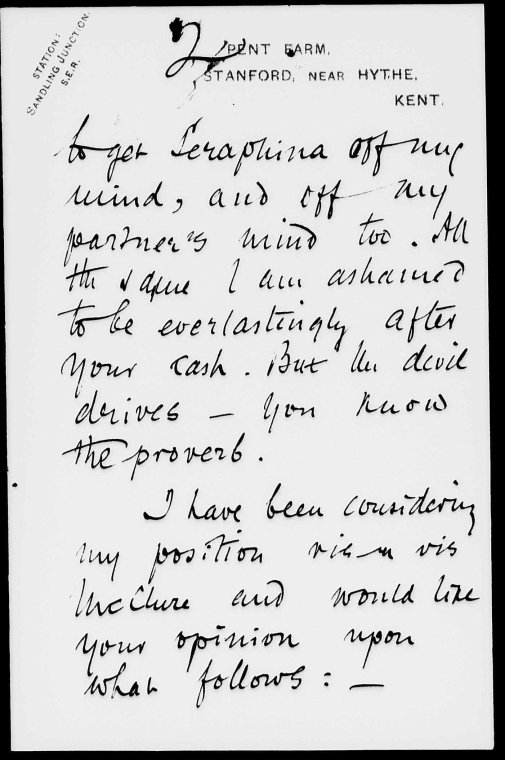 STATION:
SANDLING JUNCTION.
S.E.R.
2
PENT FARM,
STANFORD, NEAR HYTHE,
KENT.
to get Seraphina off my
mind, and off my
partner's mind too. All
the same I am ashamed
to be everlastingly after
your cash. But the devil
drives — you know
the proverb.
I have been considering
my position vis-a vis
McClure and would like
your opinion upon
what follows: —